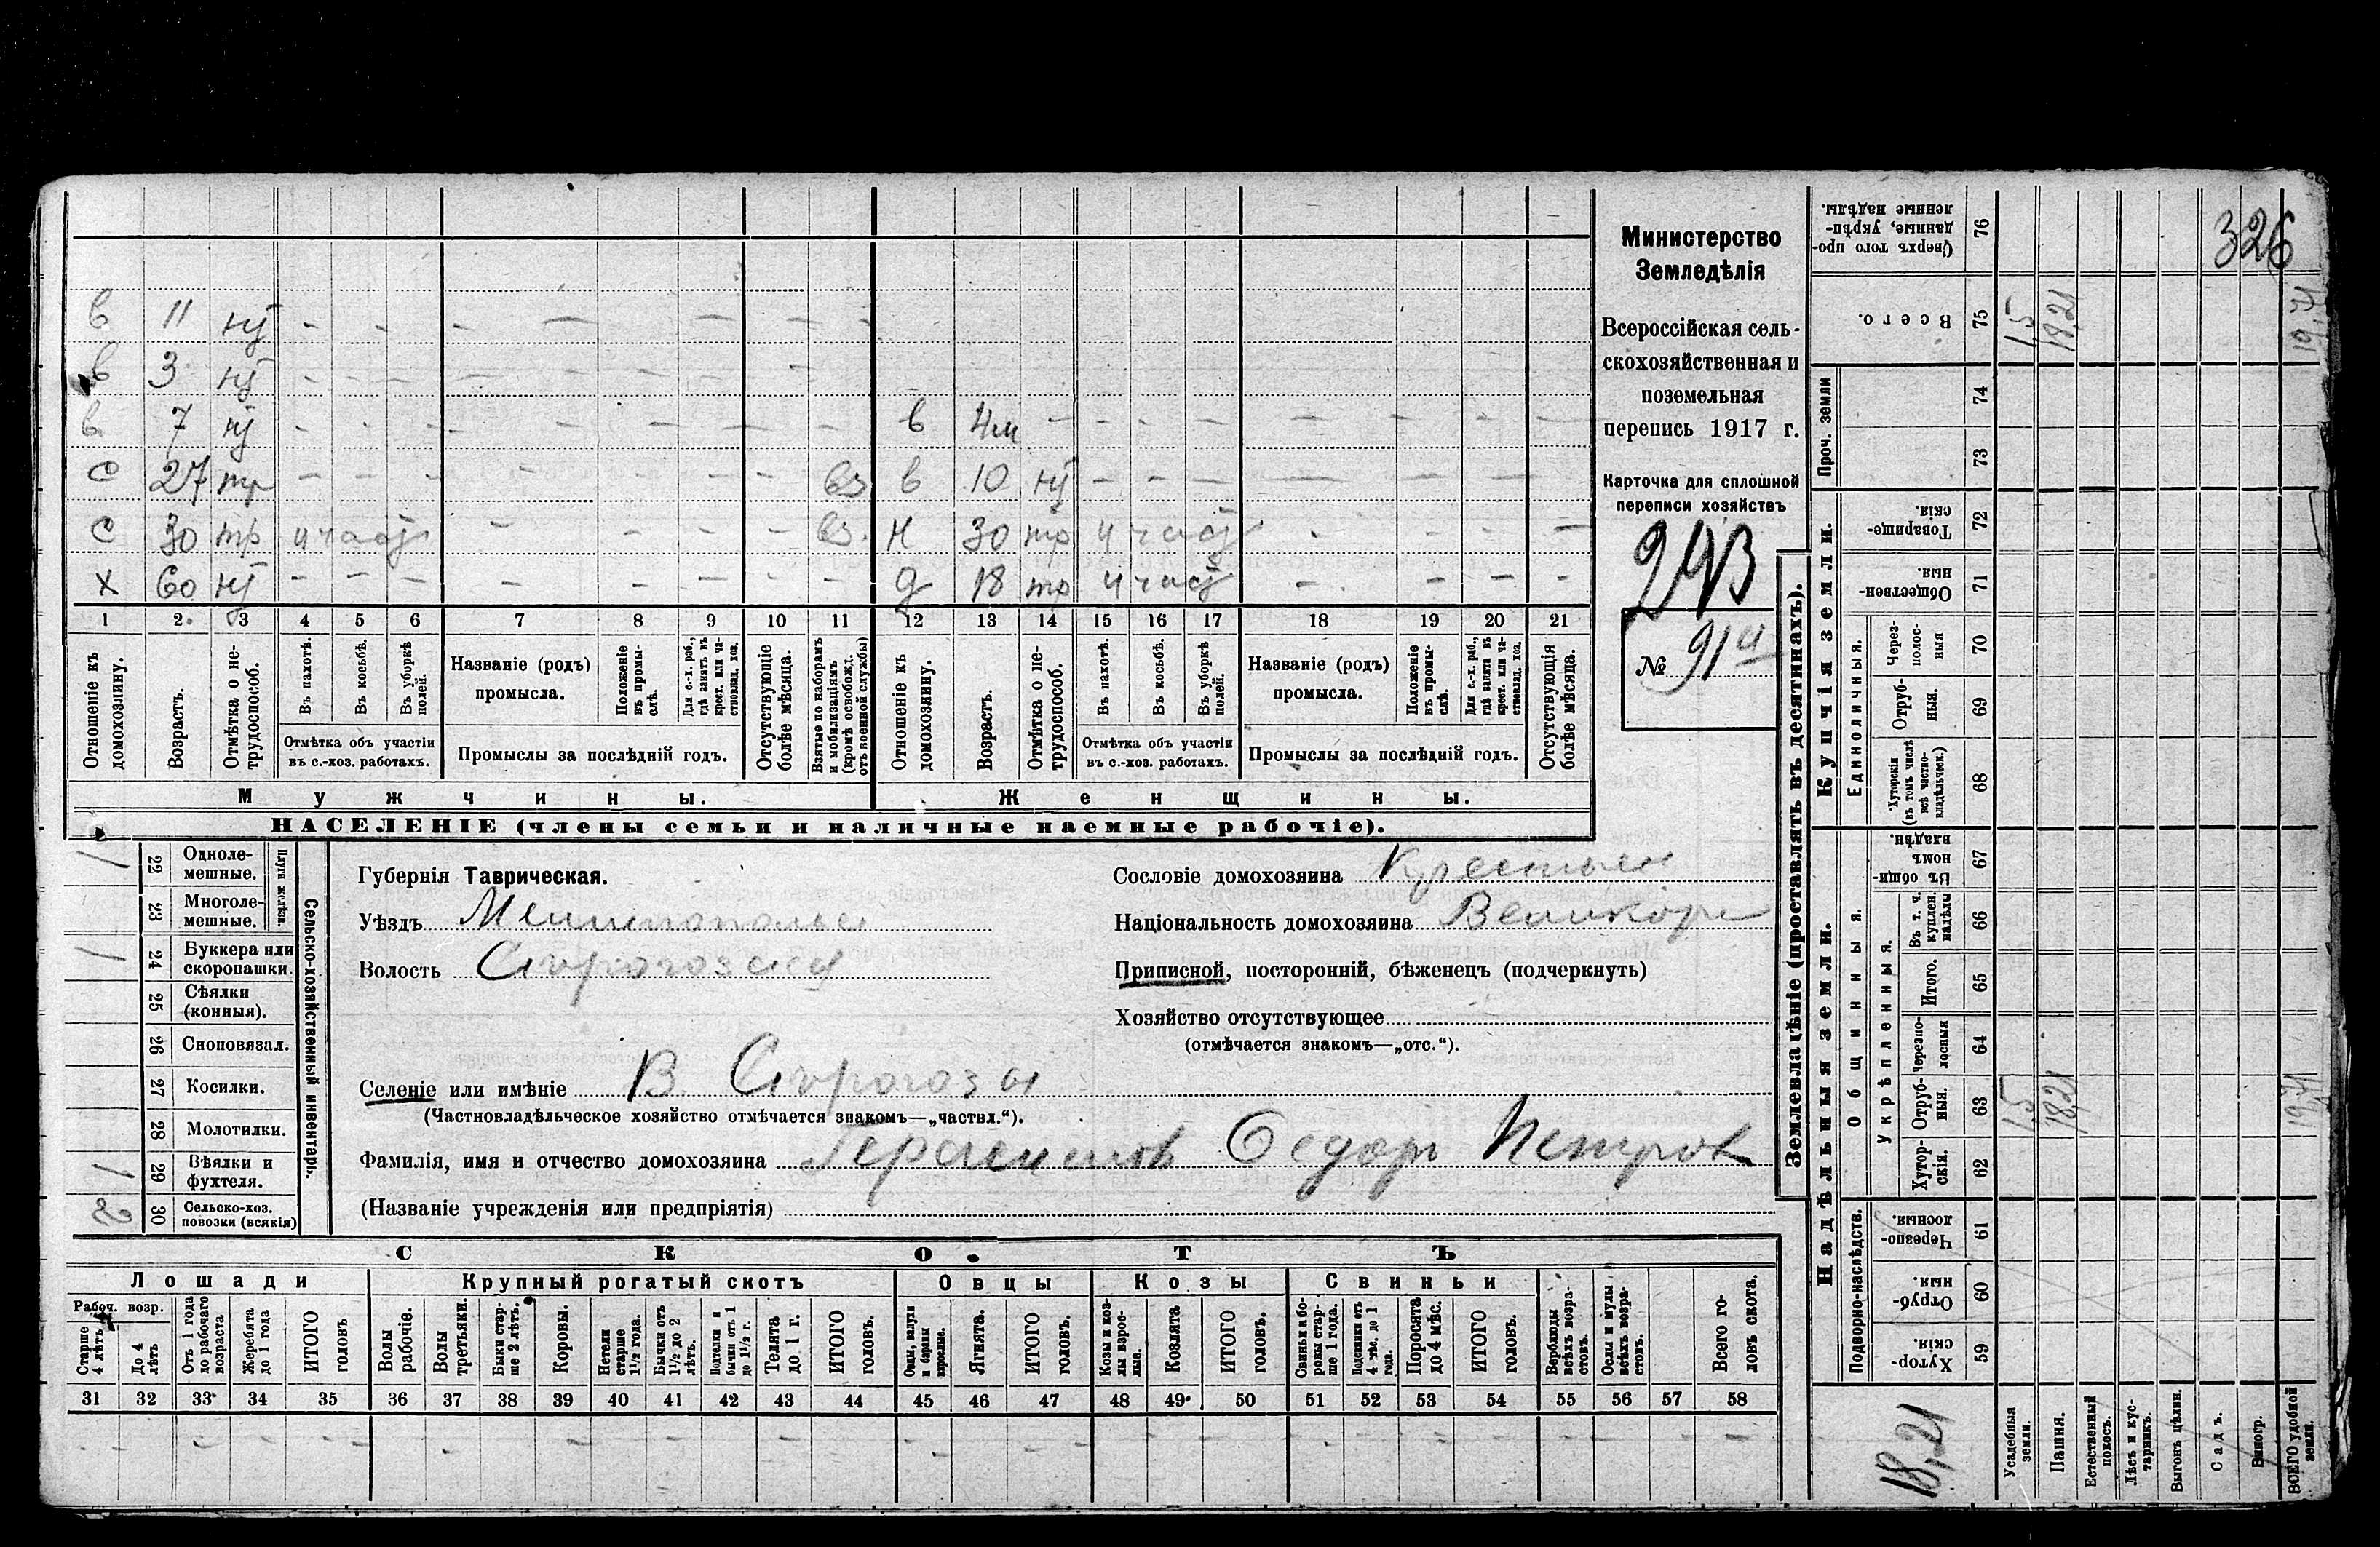 в 11 нт - - - - - - - -
в 3 нт - - - - - - - -
в 7 нт - - - - - - - - в 4м - - - - - - - -
с 27 тр - - - - - - - вз в 10 нт - - - - - - -
с 30 тр - - - - вз. н 30 тр - - - -
х 60 нт - - - - - - - - д 18 тр - - - -
1 2 3 4 5 6 7 8 9 10 11 12 13 14 15 16 17 18 19 20 21
Отношеніе къ домохозяину.
Возрастъ.
Отмѣтка о нетрудоспособ.
Въ пахотѣ.
Въ косьбѣ.
Въ уборкѣ полей.
Названіе (родъ) промысла.
Положеніе въ промыслѣ.
Для с.-х. раб., гдѣ занятъ въ крест. или частновлад. хоз.
Отсутствующіе болѣе мѣсяца.
Взятые по наборамъ и мобилизаціямъ (кромѣ освобожд. отъ военной службы)
Отношеніе къ домохозяину.
Возрастъ.
Отмѣтка о нетрудоспособ.
Въ пахотѣ.
Въ косьбѣ.
Въ уборкѣ полей.
Названіе (родъ) промысла.
Положеніе въ промыслѣ.
Для с.-х. раб., гдѣ занята въ крест. или частновлад. хоз.
Отсутствующія болѣе мѣсяца.
Отмѣтка объ участіи въ с.-хоз. работахъ.
Промыслы за послѣдній годъ.
Отмѣтка объ участіи въ с.-хоз. работахъ.
Промыслы за послѣдній годъ.
Мужчины.
Женщины.
НАСЕЛЕНІЕ (члены семьи и наличные наемные рабочіе).
Министерство
Земледѣлія
Всероссійская сель-
скохозяйственная и
поземельная
перепись 1917 г.
Карточка для сплошной
переписи хозяйствъ
293
№ 91
1 22 Одноле-мешные.
23 Многоле-мешные.
Плуги желѣзн.
1 24 Буккера или скоропашки.
25 Сѣялки (конныя).
26 Сноповязал.
27 Косилки.
28 Молотилки.
1 29 Вѣялки и фухтеля.
2 30 Сельско-хоз. повозки (всякія)
Сельско-хозяйственный инвентарь.
Губернія Таврическая.
Уѣздъ Мелитопольск
Волость Сѣрогозская
Селеніе или имѣніе В. Сѣрогозы
(Частновладѣльческое хозяйство отмѣчается знакомъ—„частвл.“).
Фамилія, имя и отчество домохозяина Федоръ Петров
(Названіе учрежденія или предпріятія)
Сословіе домохозяина Крестьян
Національность домохозяина Великор
Приписной, посторонній, бѣженецъ (подчеркнуть)
Хозяйство отсутствующее
(отмѣчается знакомъ—„отс.“).
СКОТЪ
Лошади
Крупный рогатый скотъ
Овцы
Козы
Свиньи
Рабоч. возр.
Старше 4 лѣтъ
До 4 лѣтъ
Отъ 1 года до рабочаго возраста
Жеребята до 1 года
ИТОГО головъ
Волы рабочіе.
Волы третьяки.
Быки старше 2 лѣтъ.
Коровы.
Нетели старше 1½ года.
Бычки отъ 1½ до 2 лѣтъ.
Подтелки и бычки отъ 1 до 1½ г.
Телята до 1 г.
ИТОГО головъ.
Овцы, валухи и бараны взрослые.
Ягнята.
ИТОГО головъ.
Козы и козлы взрослые.
Козлята
ИТОГО головъ.
Свиньи и боровы старше 1 года.
Подсвинки отъ 4 мѣс. до 1 года.
Поросята до 4 мѣс.
ИТОГО головъ.
Верблюды всѣхъ возрастовъ.
Ослы и мулы всѣхъ возрастовъ.
Всего головъ скота.
31 32 33 34 35 36 37 38 39 40 41 42 43 44 45 46 47 48 49 50 51 52 53 54 55 56 57 58
Землевладѣніе (проставлять въ десятинахъ).
Надѣльныя земли.
Купчія земли.
Проч. земли
Подворно-наслѣдств.
Общинныя.
Укрѣпленныя.
Единоличныя.
Сверхъ того проданные, укрѣпленные надѣлы. 76 326
Всего. 75 1,5 18,21 19,71
74
73
Товарищескія. 72
Общественныя. 71
Черезполосныя 70
Отрубныя. 69
Хуторскія (въ томъ числѣ всѣ частновладѣльческ.) 68
Въ общинномъ владѣн. 67
В т. ч. куплен. надѣлы 66
Итого. 65
Черезполосныя 64
Отрубныя. 63 1,5 18,21 19,71
Хуторскія. 62
Черезполосныя. 61
Отрубныя. 60
Хуторскія 59
18,21
Усадебныя земли.
Пашня.
Естественный покосъ.
Лѣсъ и кустарникъ.
Выгонъ цѣлин.
Садъ.
Виногр.
ВСЕГО удобной земли.